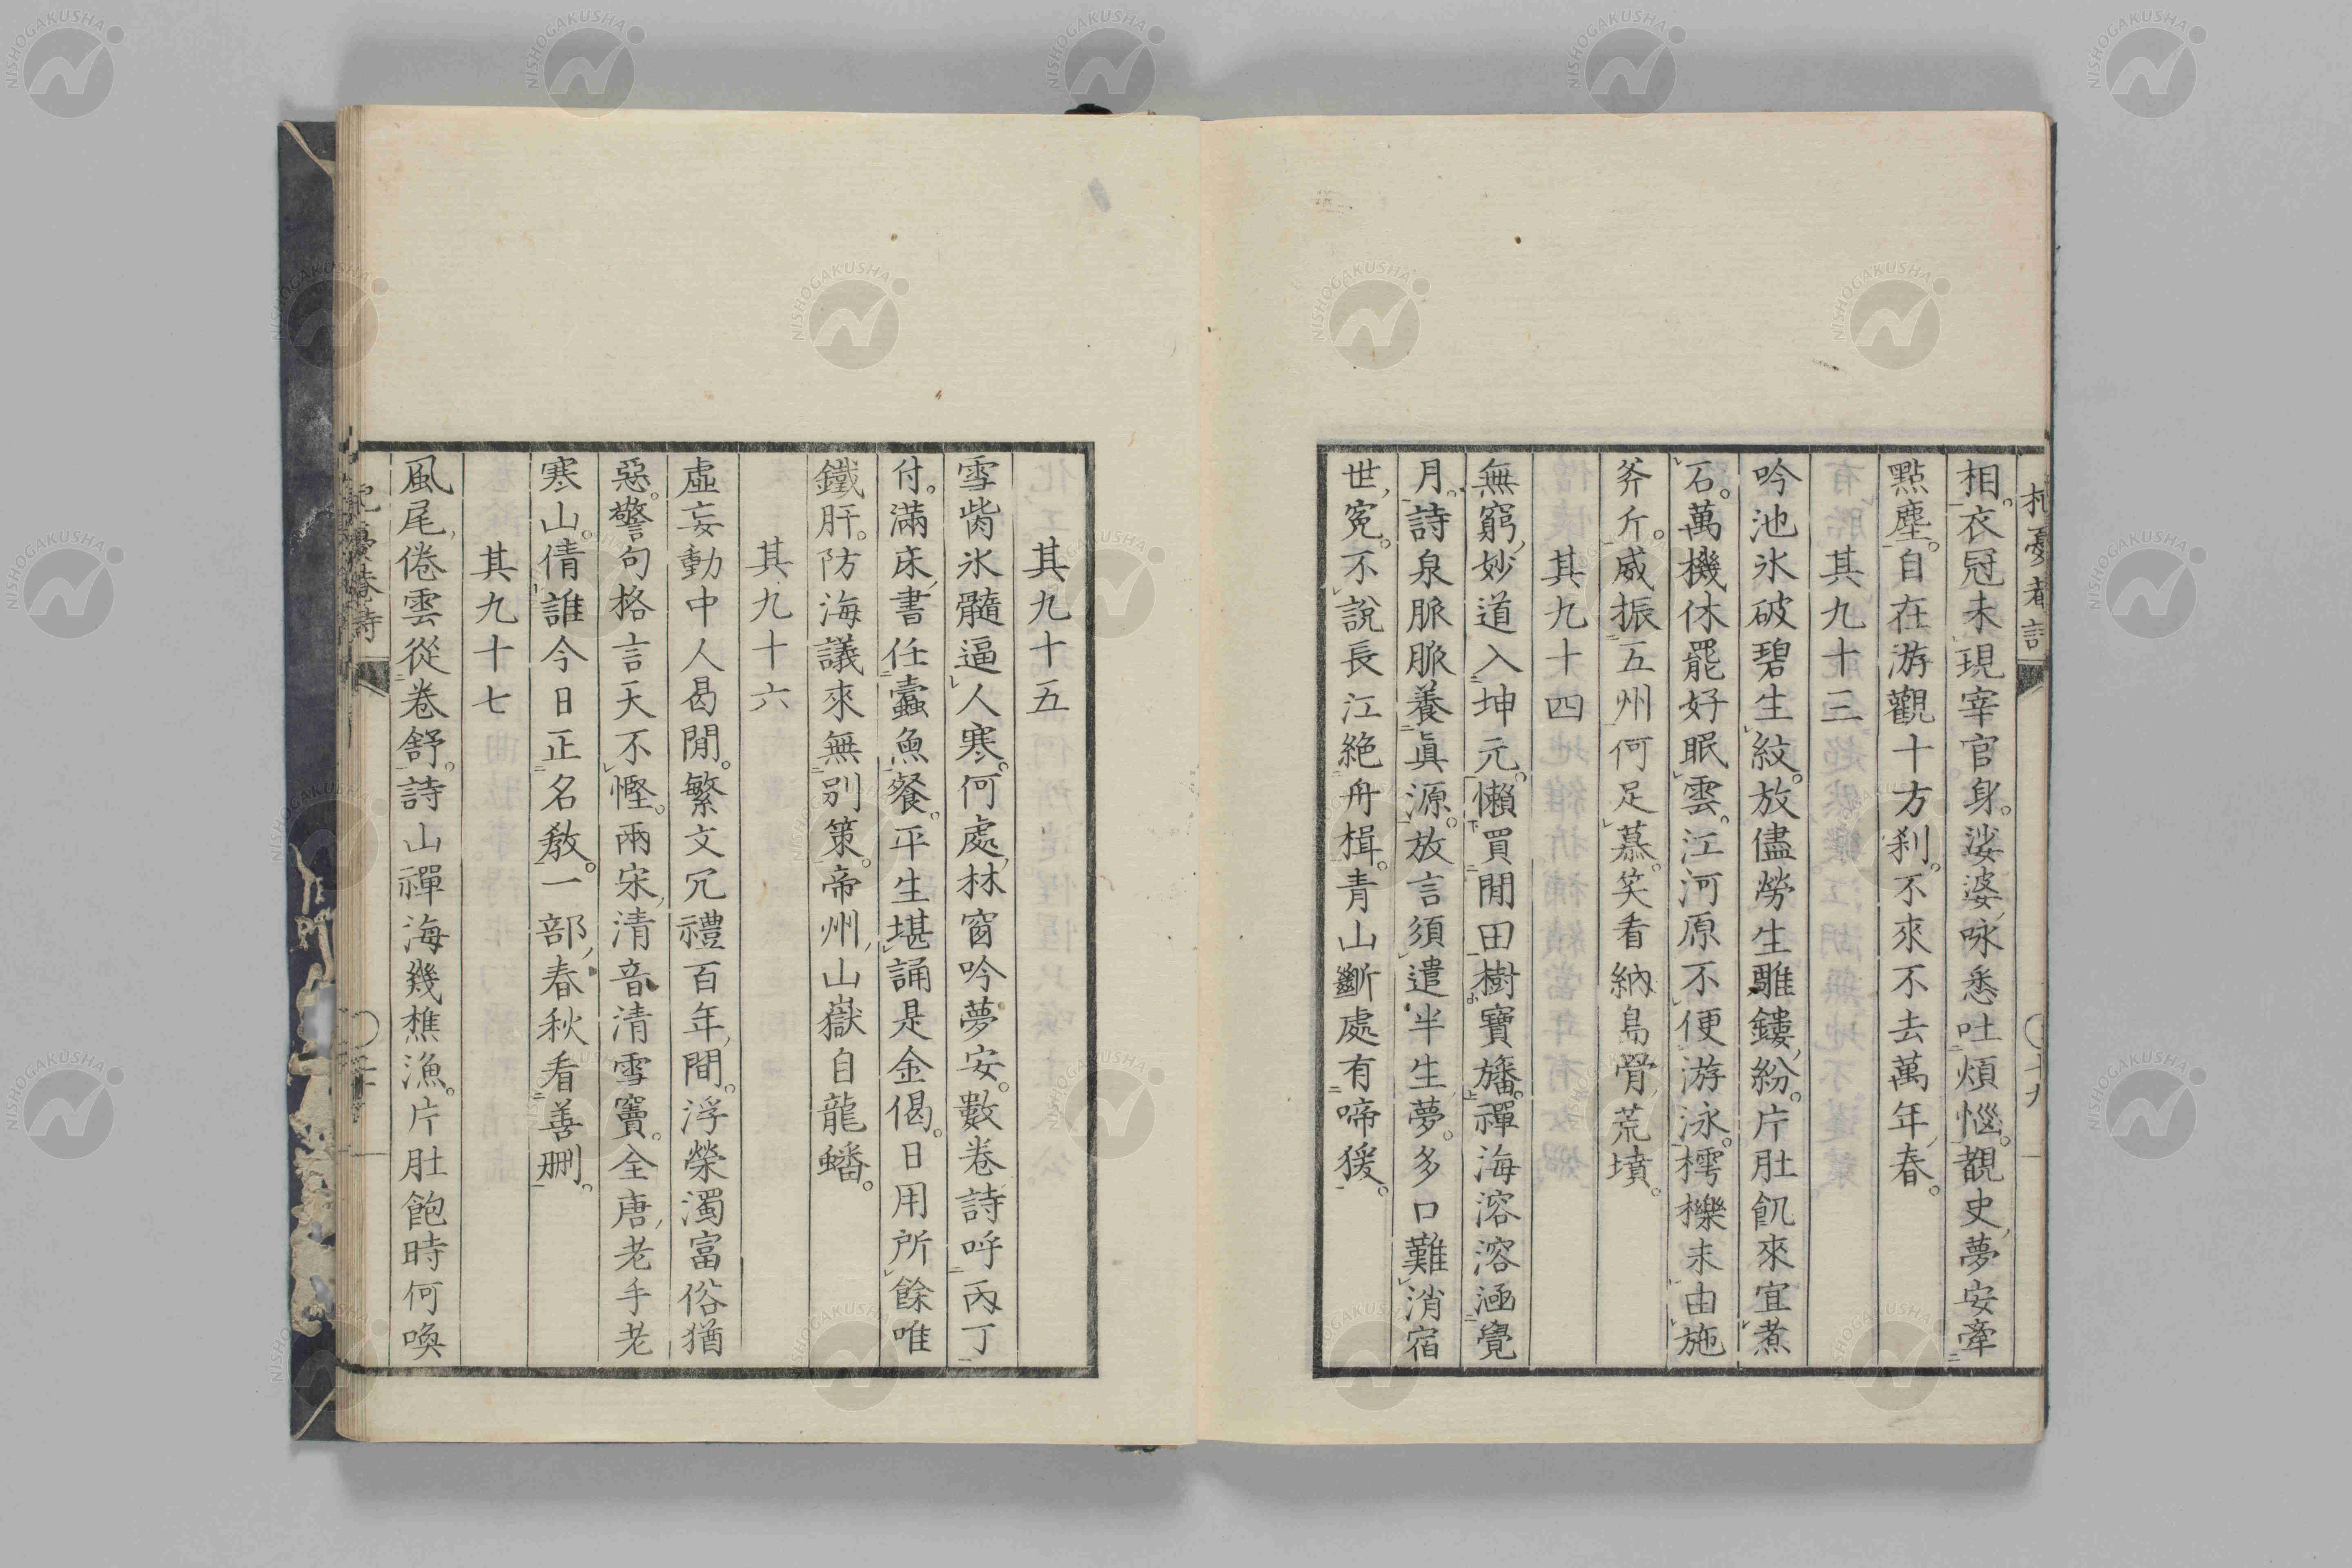 相。衣冠未現宰官身。娑婆咏悉吐煩惱。覩史夢安牽
點塵。自在游觀十方刹。不來不去萬年春。
其九十三
吟池氷破碧生紋。放儘勞生雕鏤紛。片肚飢來宜煮
石。萬機休罷好眠雲。江河原不便游泳。樗櫟未由施
斧斤。威振五州何足慕。笑看納島骨荒墳。
其九十四
無窮妙道入坤元。懶買閒田樹寶旛。禪海溶溶涵覺
月。詩泉脈脈養眞源。放言須遣半生夢。多口難消宿
世冤。不說長江絕舟楫。青山斷處有啼猨。
其九十五
雪胔氷髓逼人寒。何處林窗吟夢安。數卷詩呼丙丁
付。滿床書任蠹魚餐。平生堪誦是金偈。日用所餘唯
鐵肝。防海議來無別策。帝州山嶽自龍蟠。
其九十六
虛妄動中人曷閒。繁文冗禮百年間。浮榮濁富俗猶
惡。警句格言天不慳。兩宋清音清雪竇。全唐老手老
寒山。倩誰今日正名教。一部春秋看善刪。
其九十七
風尾倦雲從卷舒。詩山禪海幾樵漁。片肚飽時何喚
NISHOGAKUSHA